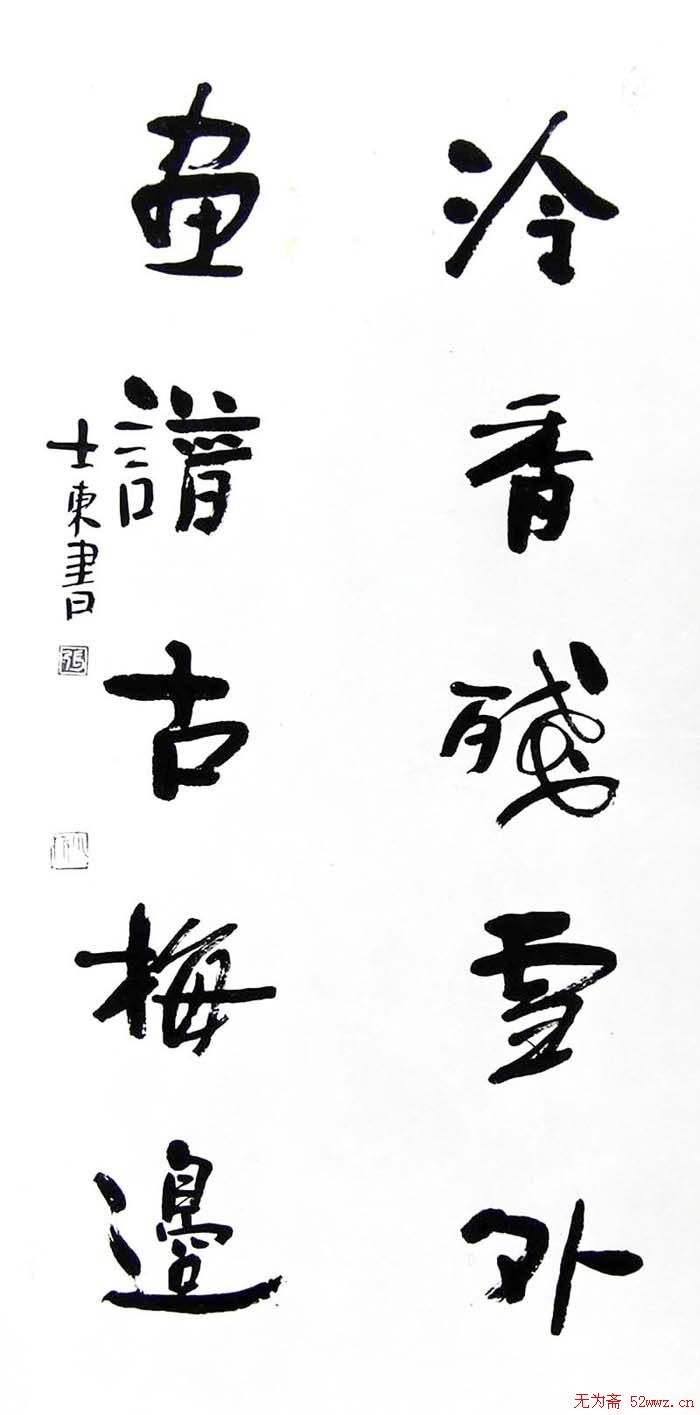 冷香殘雪外
畫譜古梅邊
士東書
張
无为斋 52wwz.cn